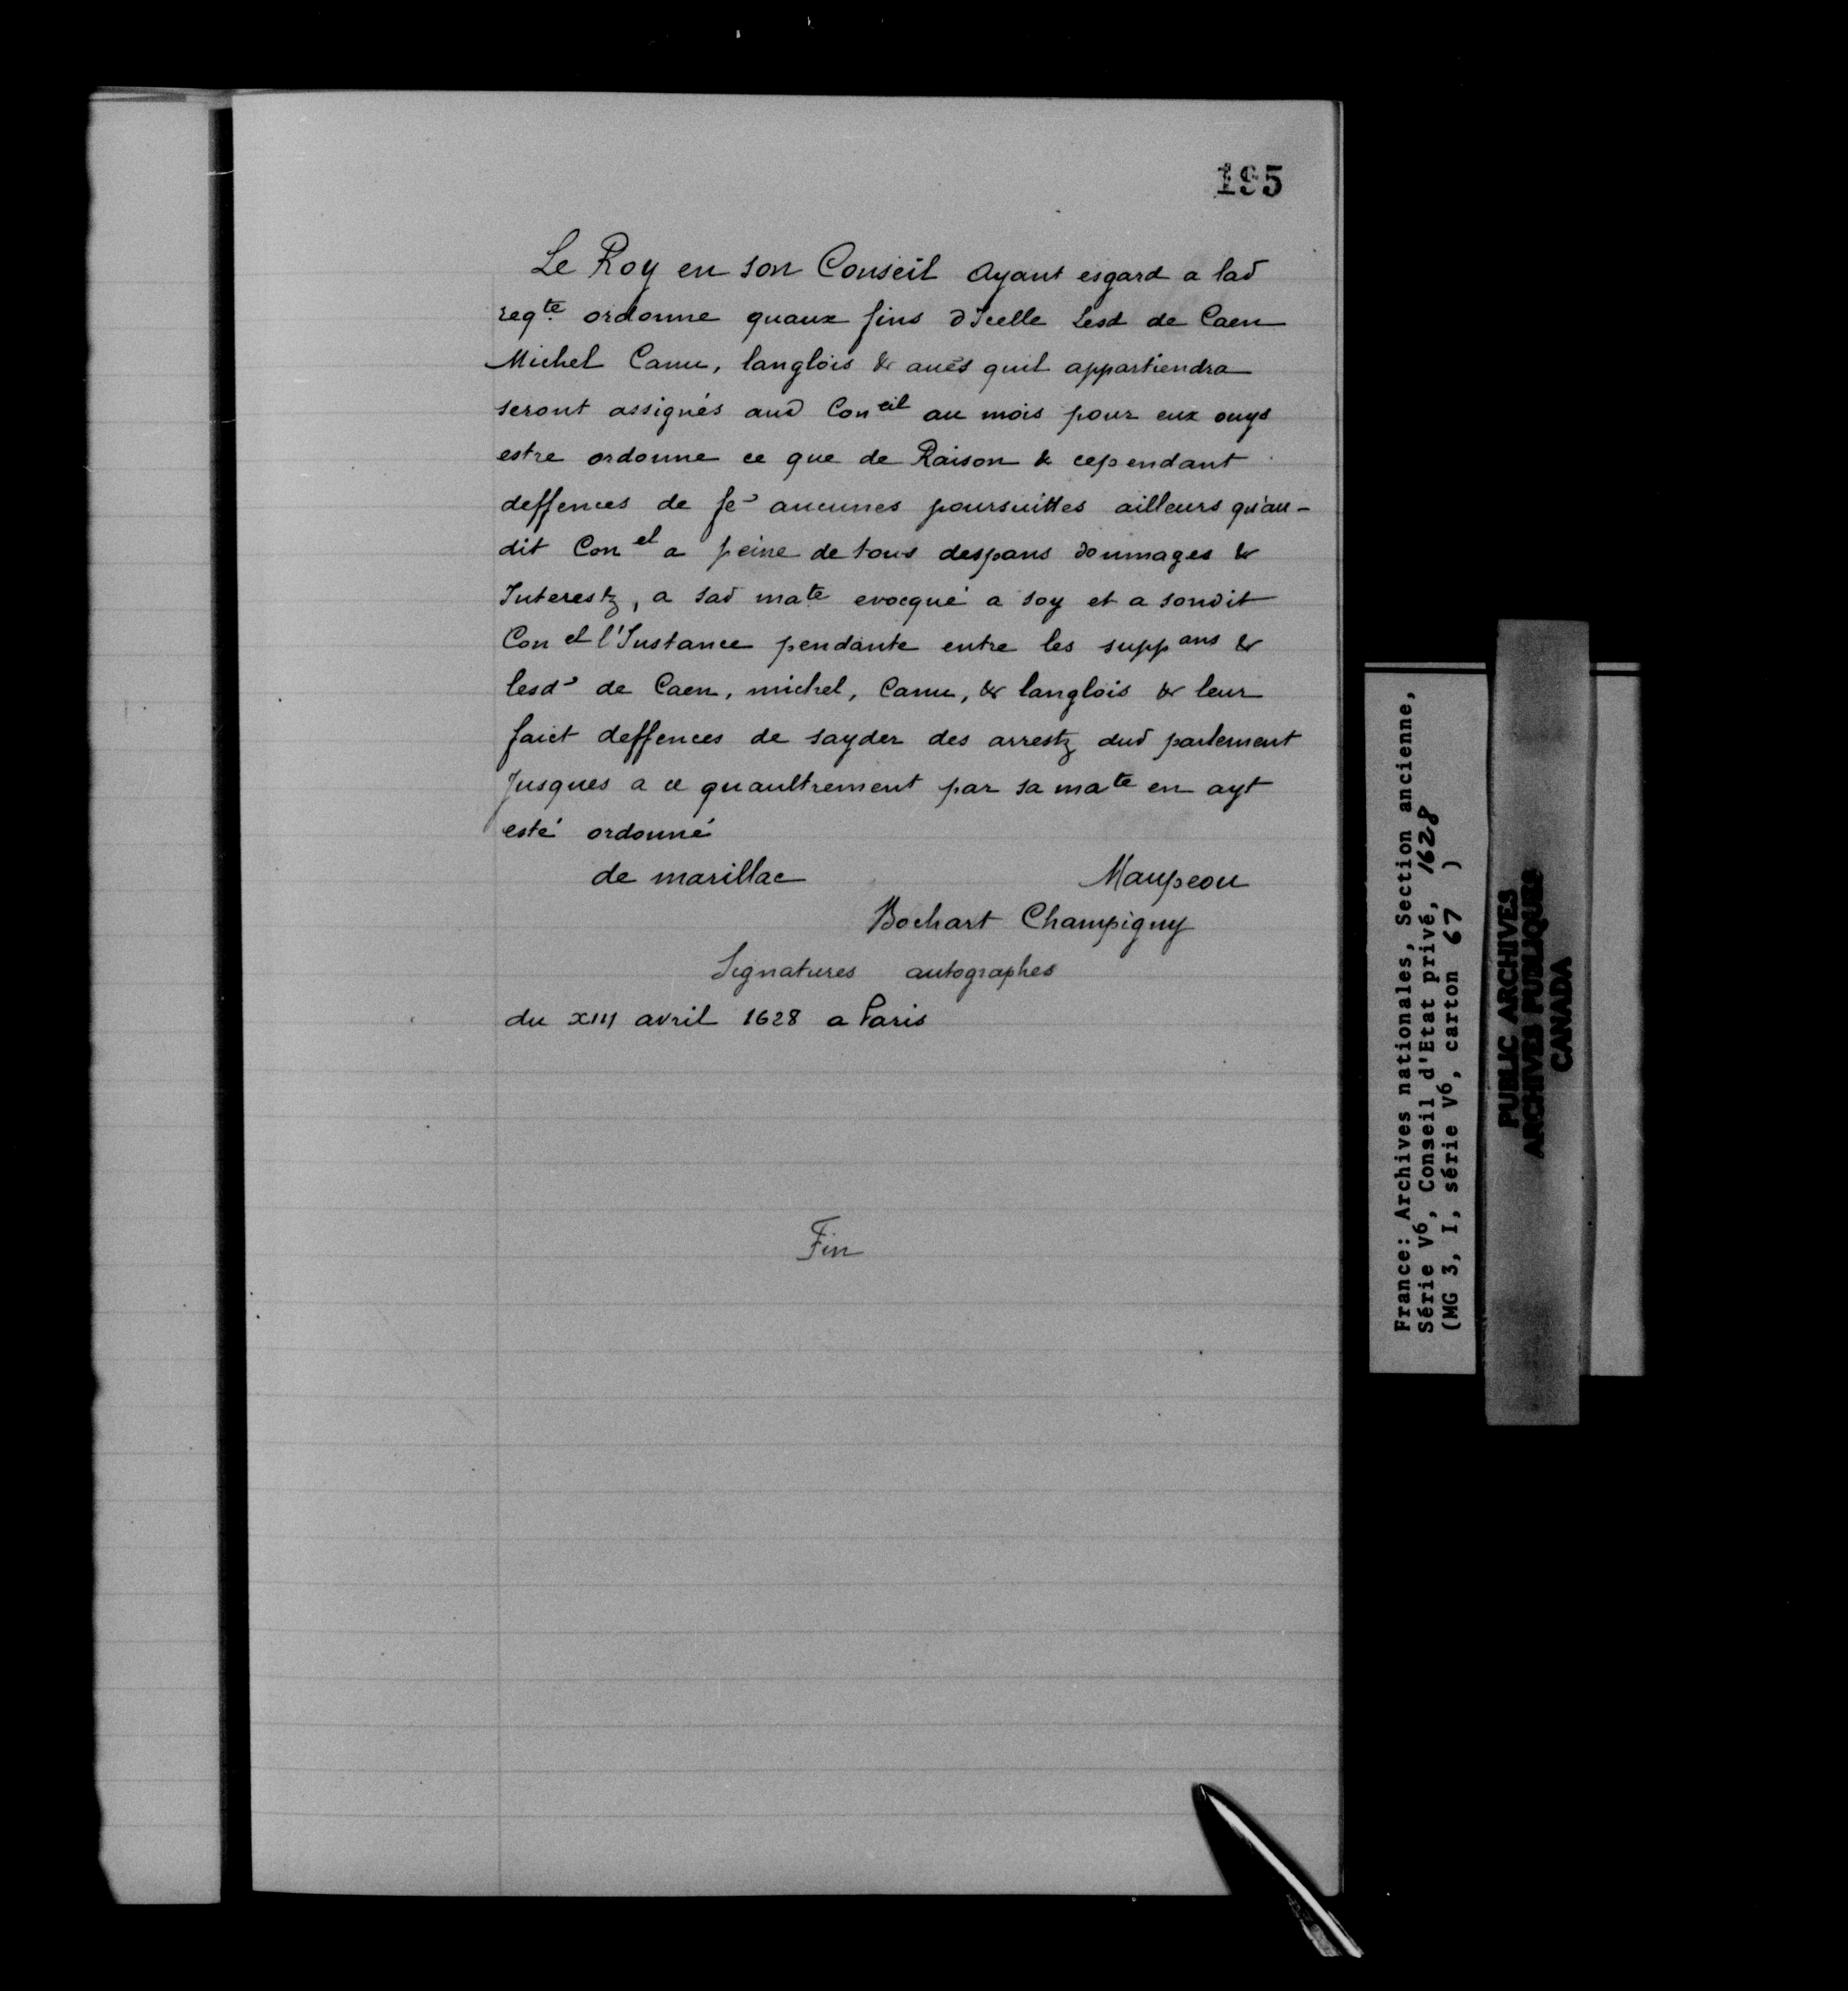 195
Le Roy en son Conseil Ayant esgard a lad
reqte ordonne quaux fins dIcelle Lesd de Caen
Michel Canu, langlois & aues quil appartiendra
seront assignés aud Coneil au mois pour eux ouys
estre ordonne ce que de Raison & cependant
deffences de fe aucunes poursuittes ailleurs qu'au-
dit Conel a peine de tous despans dommages &
Interestz, a sad mate evocqué a soy et a sondit
Conel l'Instance pendante entre les suppans &
lesd de Caen, michel, Canu, & langlois & leur
faict deffences de sayder des arrestz dud parlement
Jusques a ce quaultrement par sa mate en ayt
esté ordonné
de marillac Maupeou
Bochart Champigny
Signatures autographes
du XIII avril 1628 a Paris
Fin
France: Archives nationales, Section ancienne,
Série V6, Conseil d'Etat privé, 1628
(MG 3, I, série V6, carton 67 )
PUBLIC ARCHIVES
ARCHIVES PUBLIQUES
CANADA